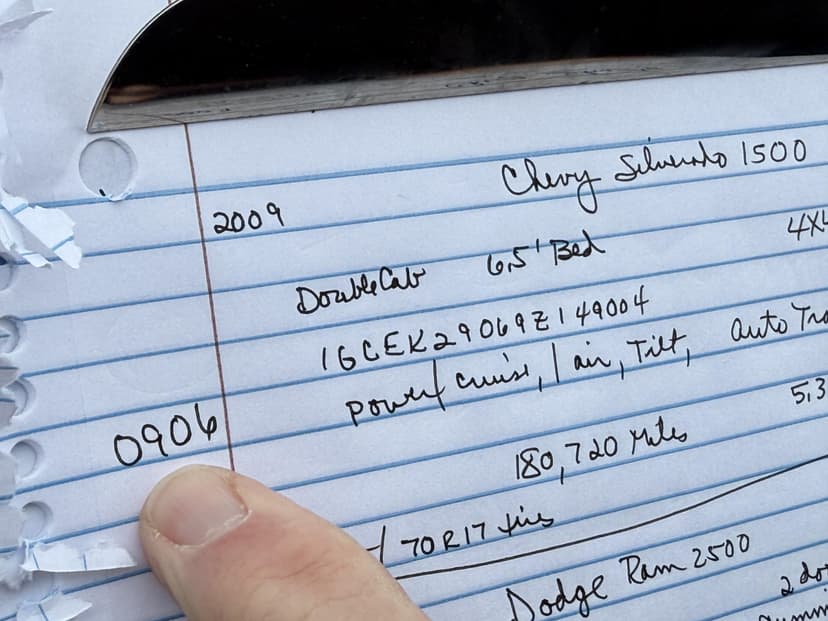 Chevy Silverado 1500
2009
Double Cab 6,5' Bed 4X4
1GCEK29069Z149004
power/ cruise, / air, Tilt, auto Tra
5,3
0906
180,720 Miles
/ 70R17 tires
Dodge Ram 2500
2 do